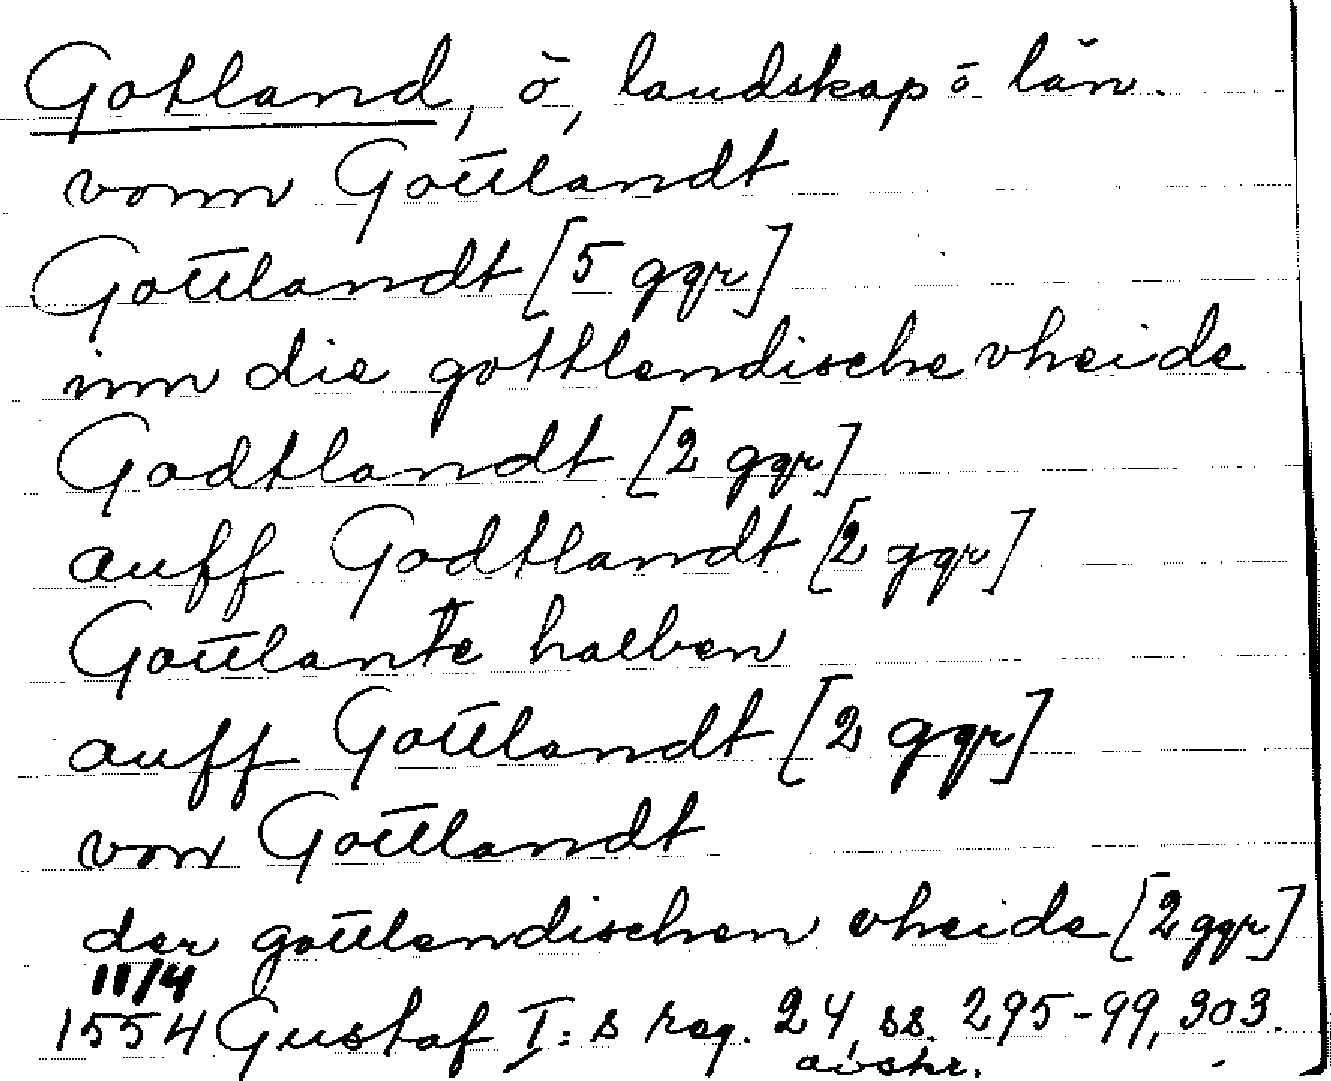 Gotland, ö, landskap o län.
vonn Gottlandt
Gottlandt [5 ggr]
inn die gottlendische vheide
Godtlandt [2 ggr]
auff Godtlandt [2 ggr]
Gottlantz halben
auff Gottlandt [2 ggr]
von Gottlandt
der gottlendischen vheide [2 ggr]
11/4
1554 Gustaf I:s reg. 24, ss. 295-99, 303.
avskr.